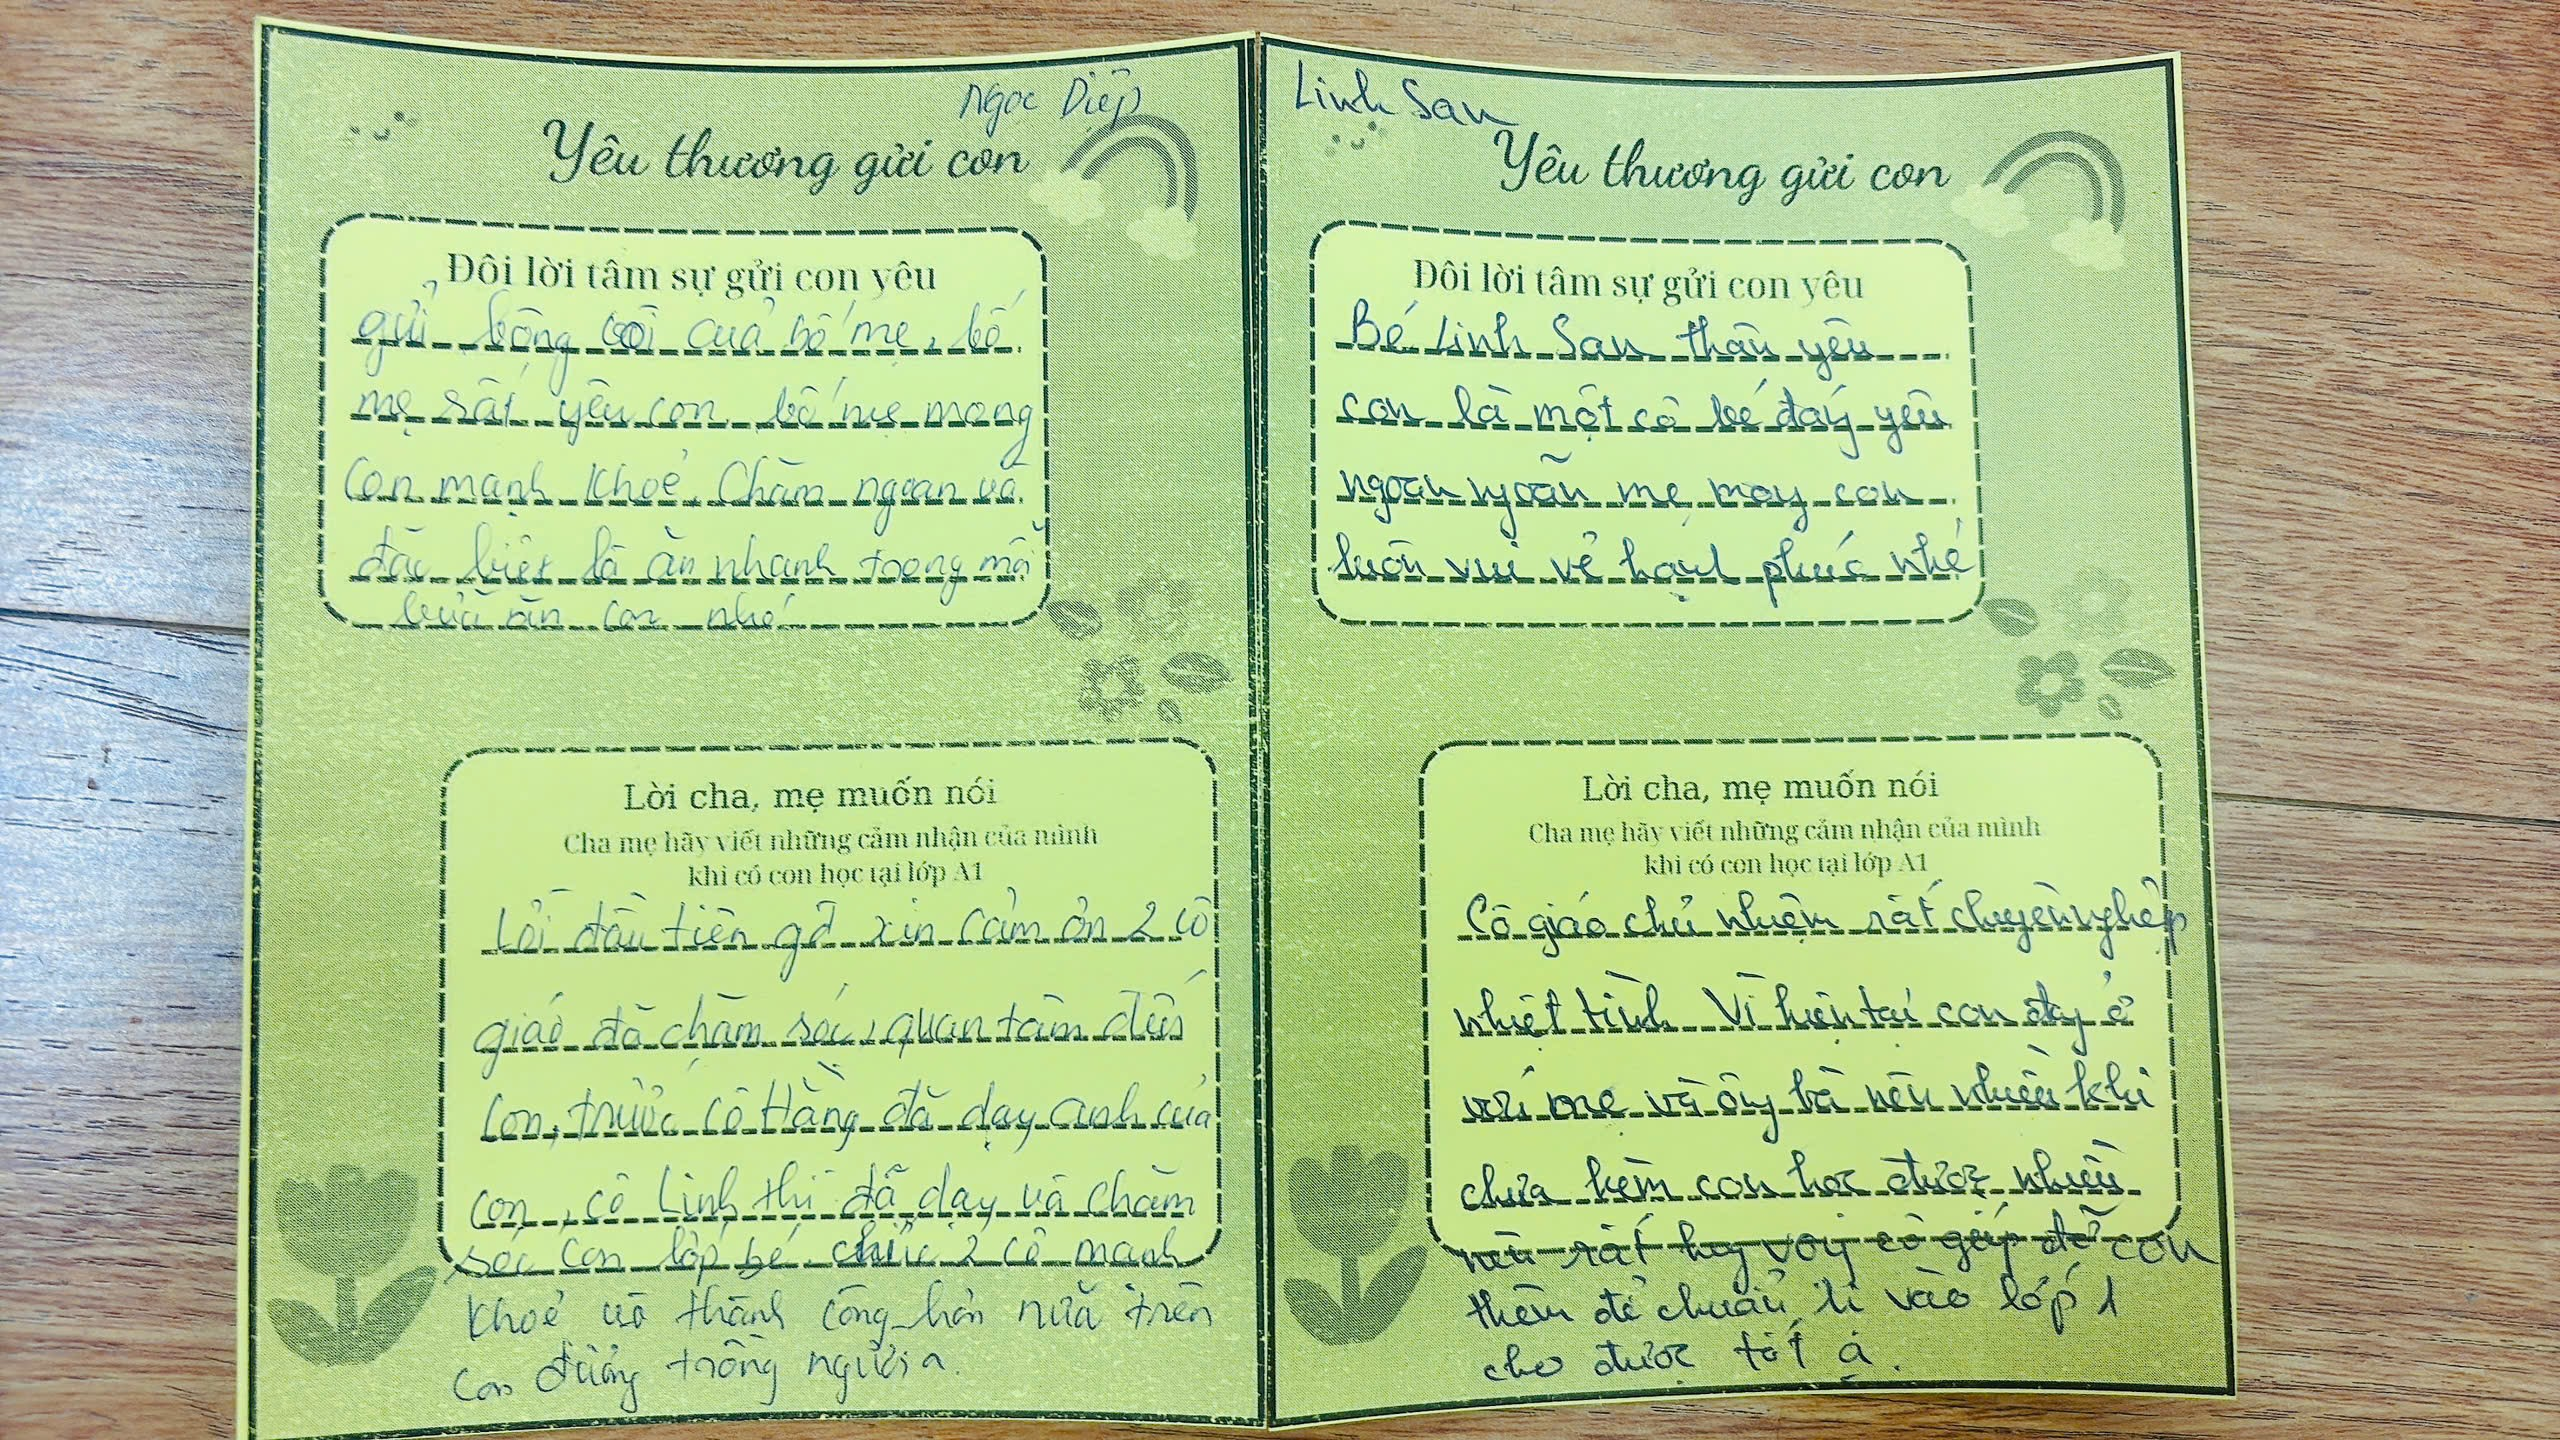 Ngọc Diệp
Yêu thương gửi con
Đôi lời tâm sự gửi con yêu
gửi bông của bố mẹ, bố
mẹ rất yêu con, bố mẹ mong
con mạnh khoẻ, Chăm ngoan và
đặc biệt là ăn nhanh trong mỗi
bữa ăn con nhé
Lời cha, mẹ muốn nói
Cha mẹ hãy viết những cảm nhận của mình
khi có con học tại lớp A1
Lời đầu tiên gđ xin cảm ơn 2 cô
giáo đã chăm sóc, quan tâm đến
con, trước cô Hằng đã dạy anh của
con, cô Linh thì đã dạy và chăm
sóc con lớp bé. chúc 2 cô mạnh
khoẻ và thành công hơn nữa trên
con đường trồng người ạ.
Linh San
Yêu thương gửi con
Đôi lời tâm sự gửi con yêu
Bé Linh San thân yêu
con là một cô bé đáng yêu
ngoan ngoãn mẹ mong con
luôn vui vẻ hạnh phúc nhé
Lời cha, mẹ muốn nói
Cha mẹ hãy viết những cảm nhận của mình
khi có con học tại lớp A1
Cô giáo chủ nhiệm rất chuyên nghiệp
nhiệt tình. Vì hiện tại con đang ở
với mẹ và ông bà nên nhiều khi
chưa kèm con học được nhiều
nên rất hy vọng cô giúp đỡ con
thêm để chuẩn bị vào lớp 1
cho được tốt ạ.